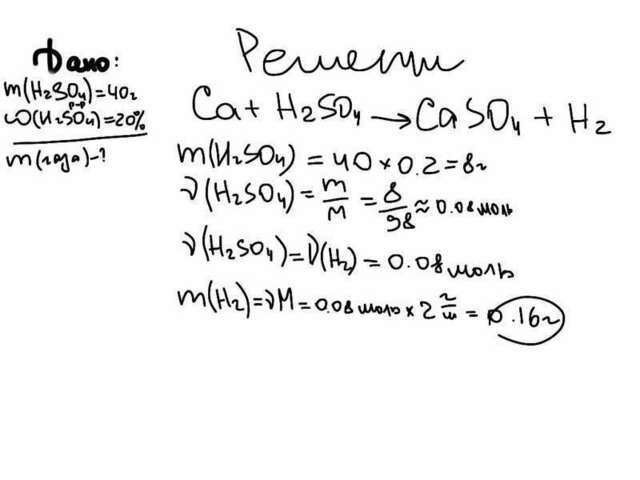 Дано:
m(H₂SO₄)=40г
р-р
ω(H₂SO₄)=20%
m(газа)-?
Решение
Ca + H₂SO₄ → CaSO₄ + H₂
m(H₂SO₄) = 40 × 0.2 = 8г
ν(H₂SO₄) = m/M = 8/98 ≈ 0.08 моль
ν(H₂SO₄) = ν(H₂) = 0.08 моль
m(H₂) = νM = 0.08 моль × 2 г/м = 0.16г